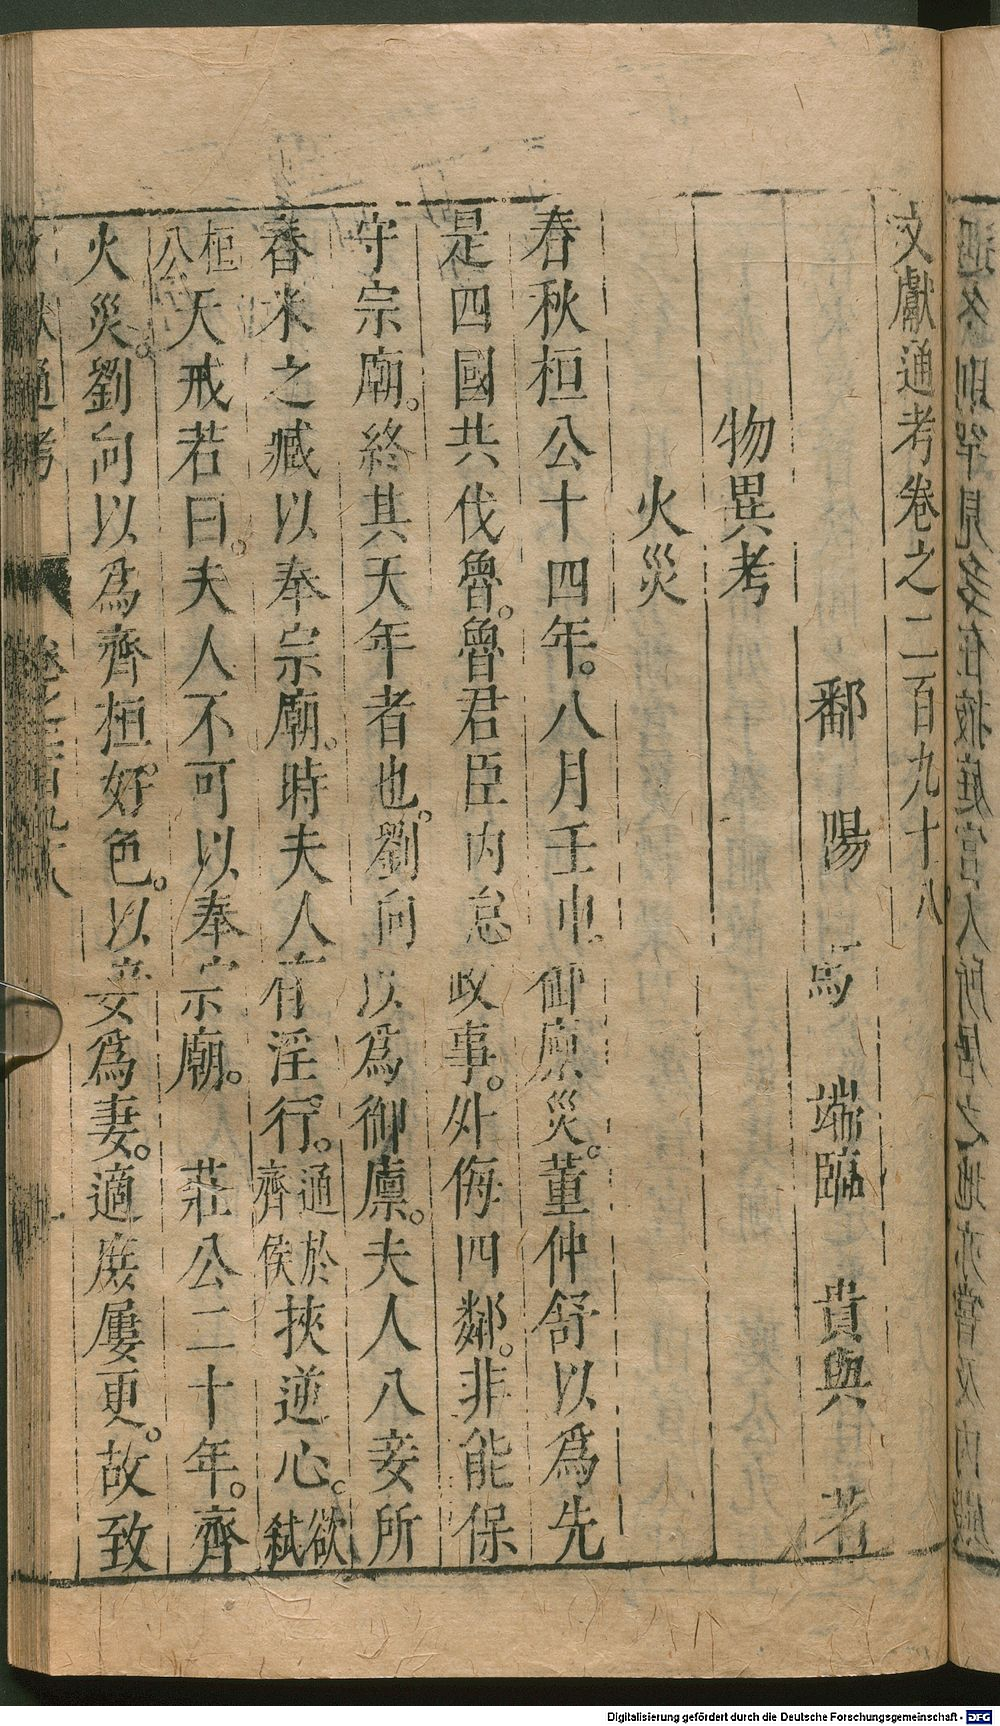 文獻通考卷之二百九十八
鄱陽馬端臨貴與著
物異考
火災
春秋桓公十四年。八月壬申。御廩災。董仲舒以為先
是四國共伐魯。魯君臣內怠政事。外侮四鄰。非能保
守宗廟。終其天年者也。劉向以為御廩。夫人八妾所
舂米之臧以奉宗廟。時夫人有淫行。通於齊侯挾逆心。欲弑
桓公天戒若曰。夫人不可以奉宗廟。 莊公二十年。齊
火災。劉向以為齊桓。好色。以妾為妻。適庶屢更。故致
文獻通考 卷之二百九十八 一
Digitalisierung gefördert durch die Deutsche Forschungsgemeinschaft - DFG